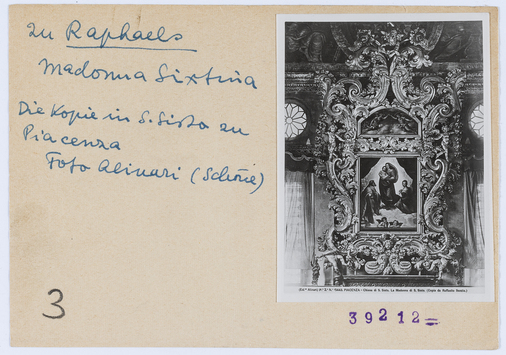 zu Raphaels
Madonna Sixtina
Die Kopie in S. Sisto zu
Piacenza
Foto Alinari (Schöne)
PIACENZA - Chiesa di S. Sisto. La Madonna di S. Sisto. (Copia da Raffaello Sanzio.)
3
39212=